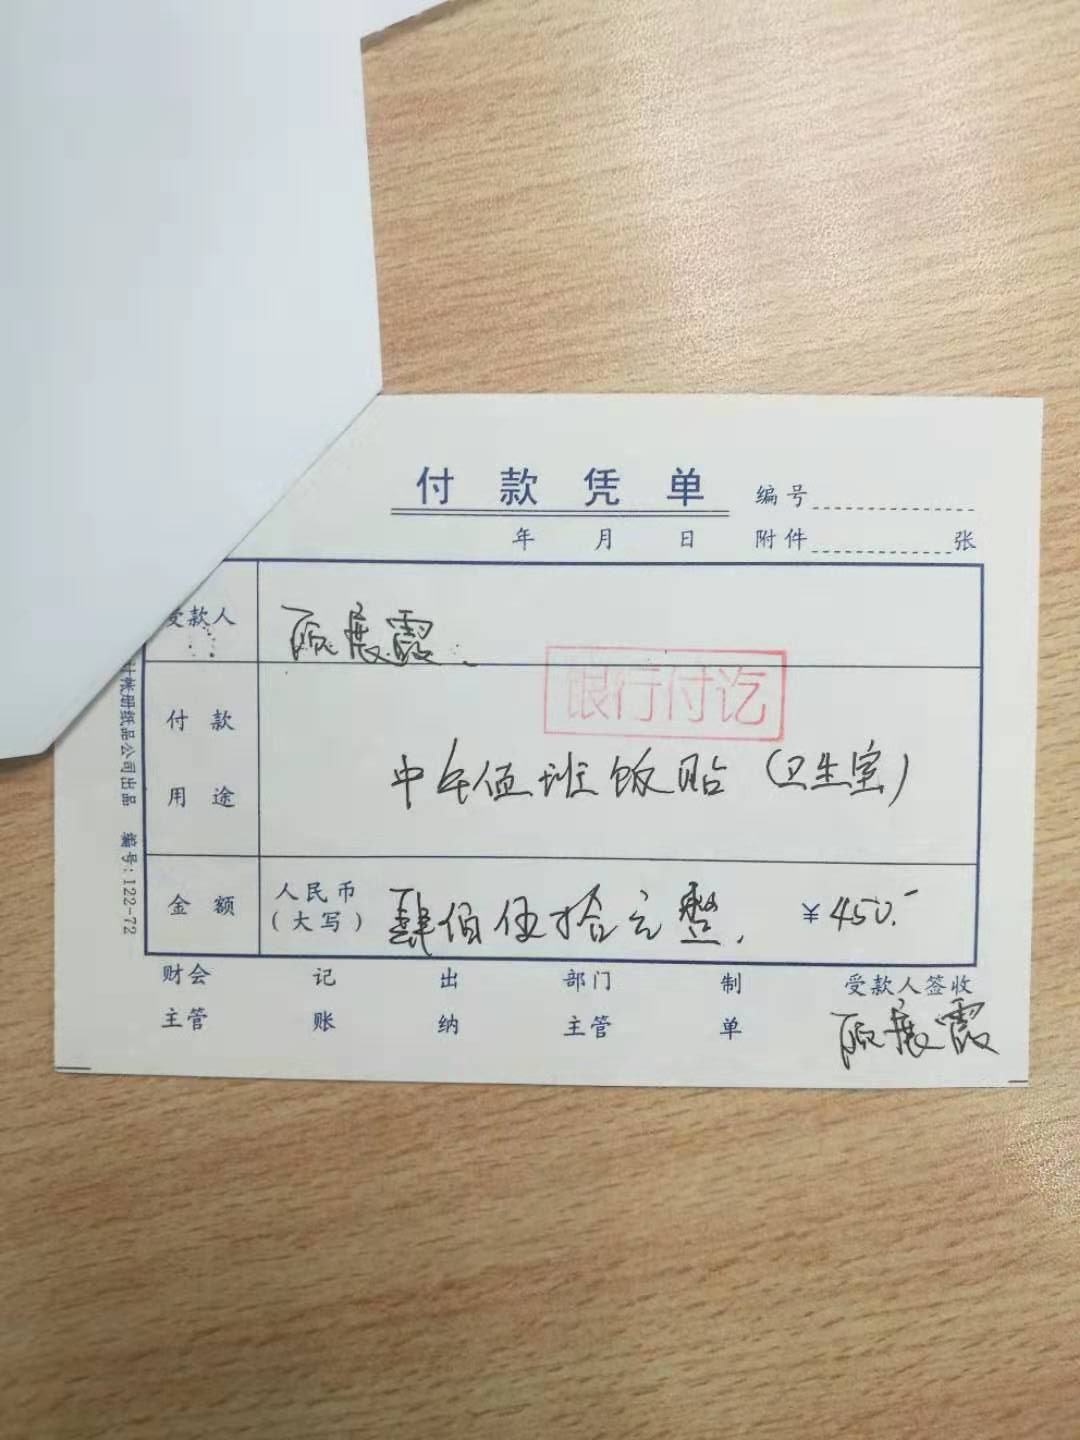 付款凭单 编号
年 月 日 附件 张
受款人
展霞
银行付讫
付款用途
中午值班饭贴（卫生室）
金额 人民币（大写） 肆佰伍拾元整 ¥450.-
财会主管 记账 出纳 部门主管 制单 受款人签收
展霞
帐册纸品公司出品 编号:122-72